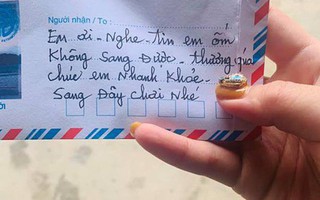 Người nhận / To :
Em ơi - Nghe - Tin em ốm
Không Sang Được - thương quá
chúc em Nhanh Khoẻ -
Sang Đây chơi Nhé